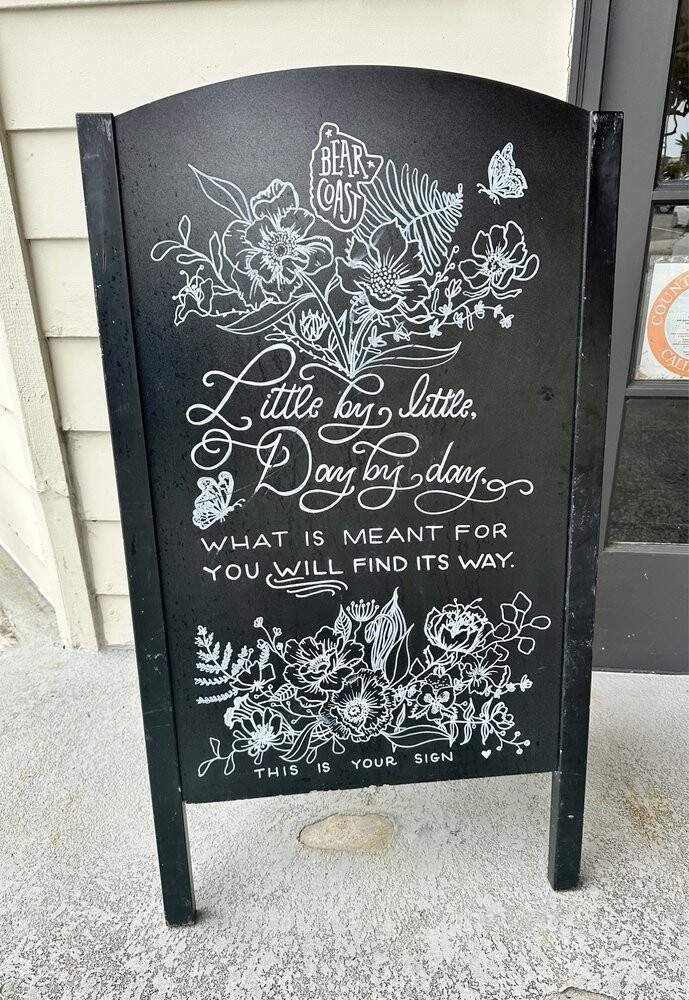 BEAR
COAST
Little by little,
Day by day,
WHAT IS MEANT FOR
YOU WILL FIND ITS WAY.
THIS IS YOUR SIGN
COUNT